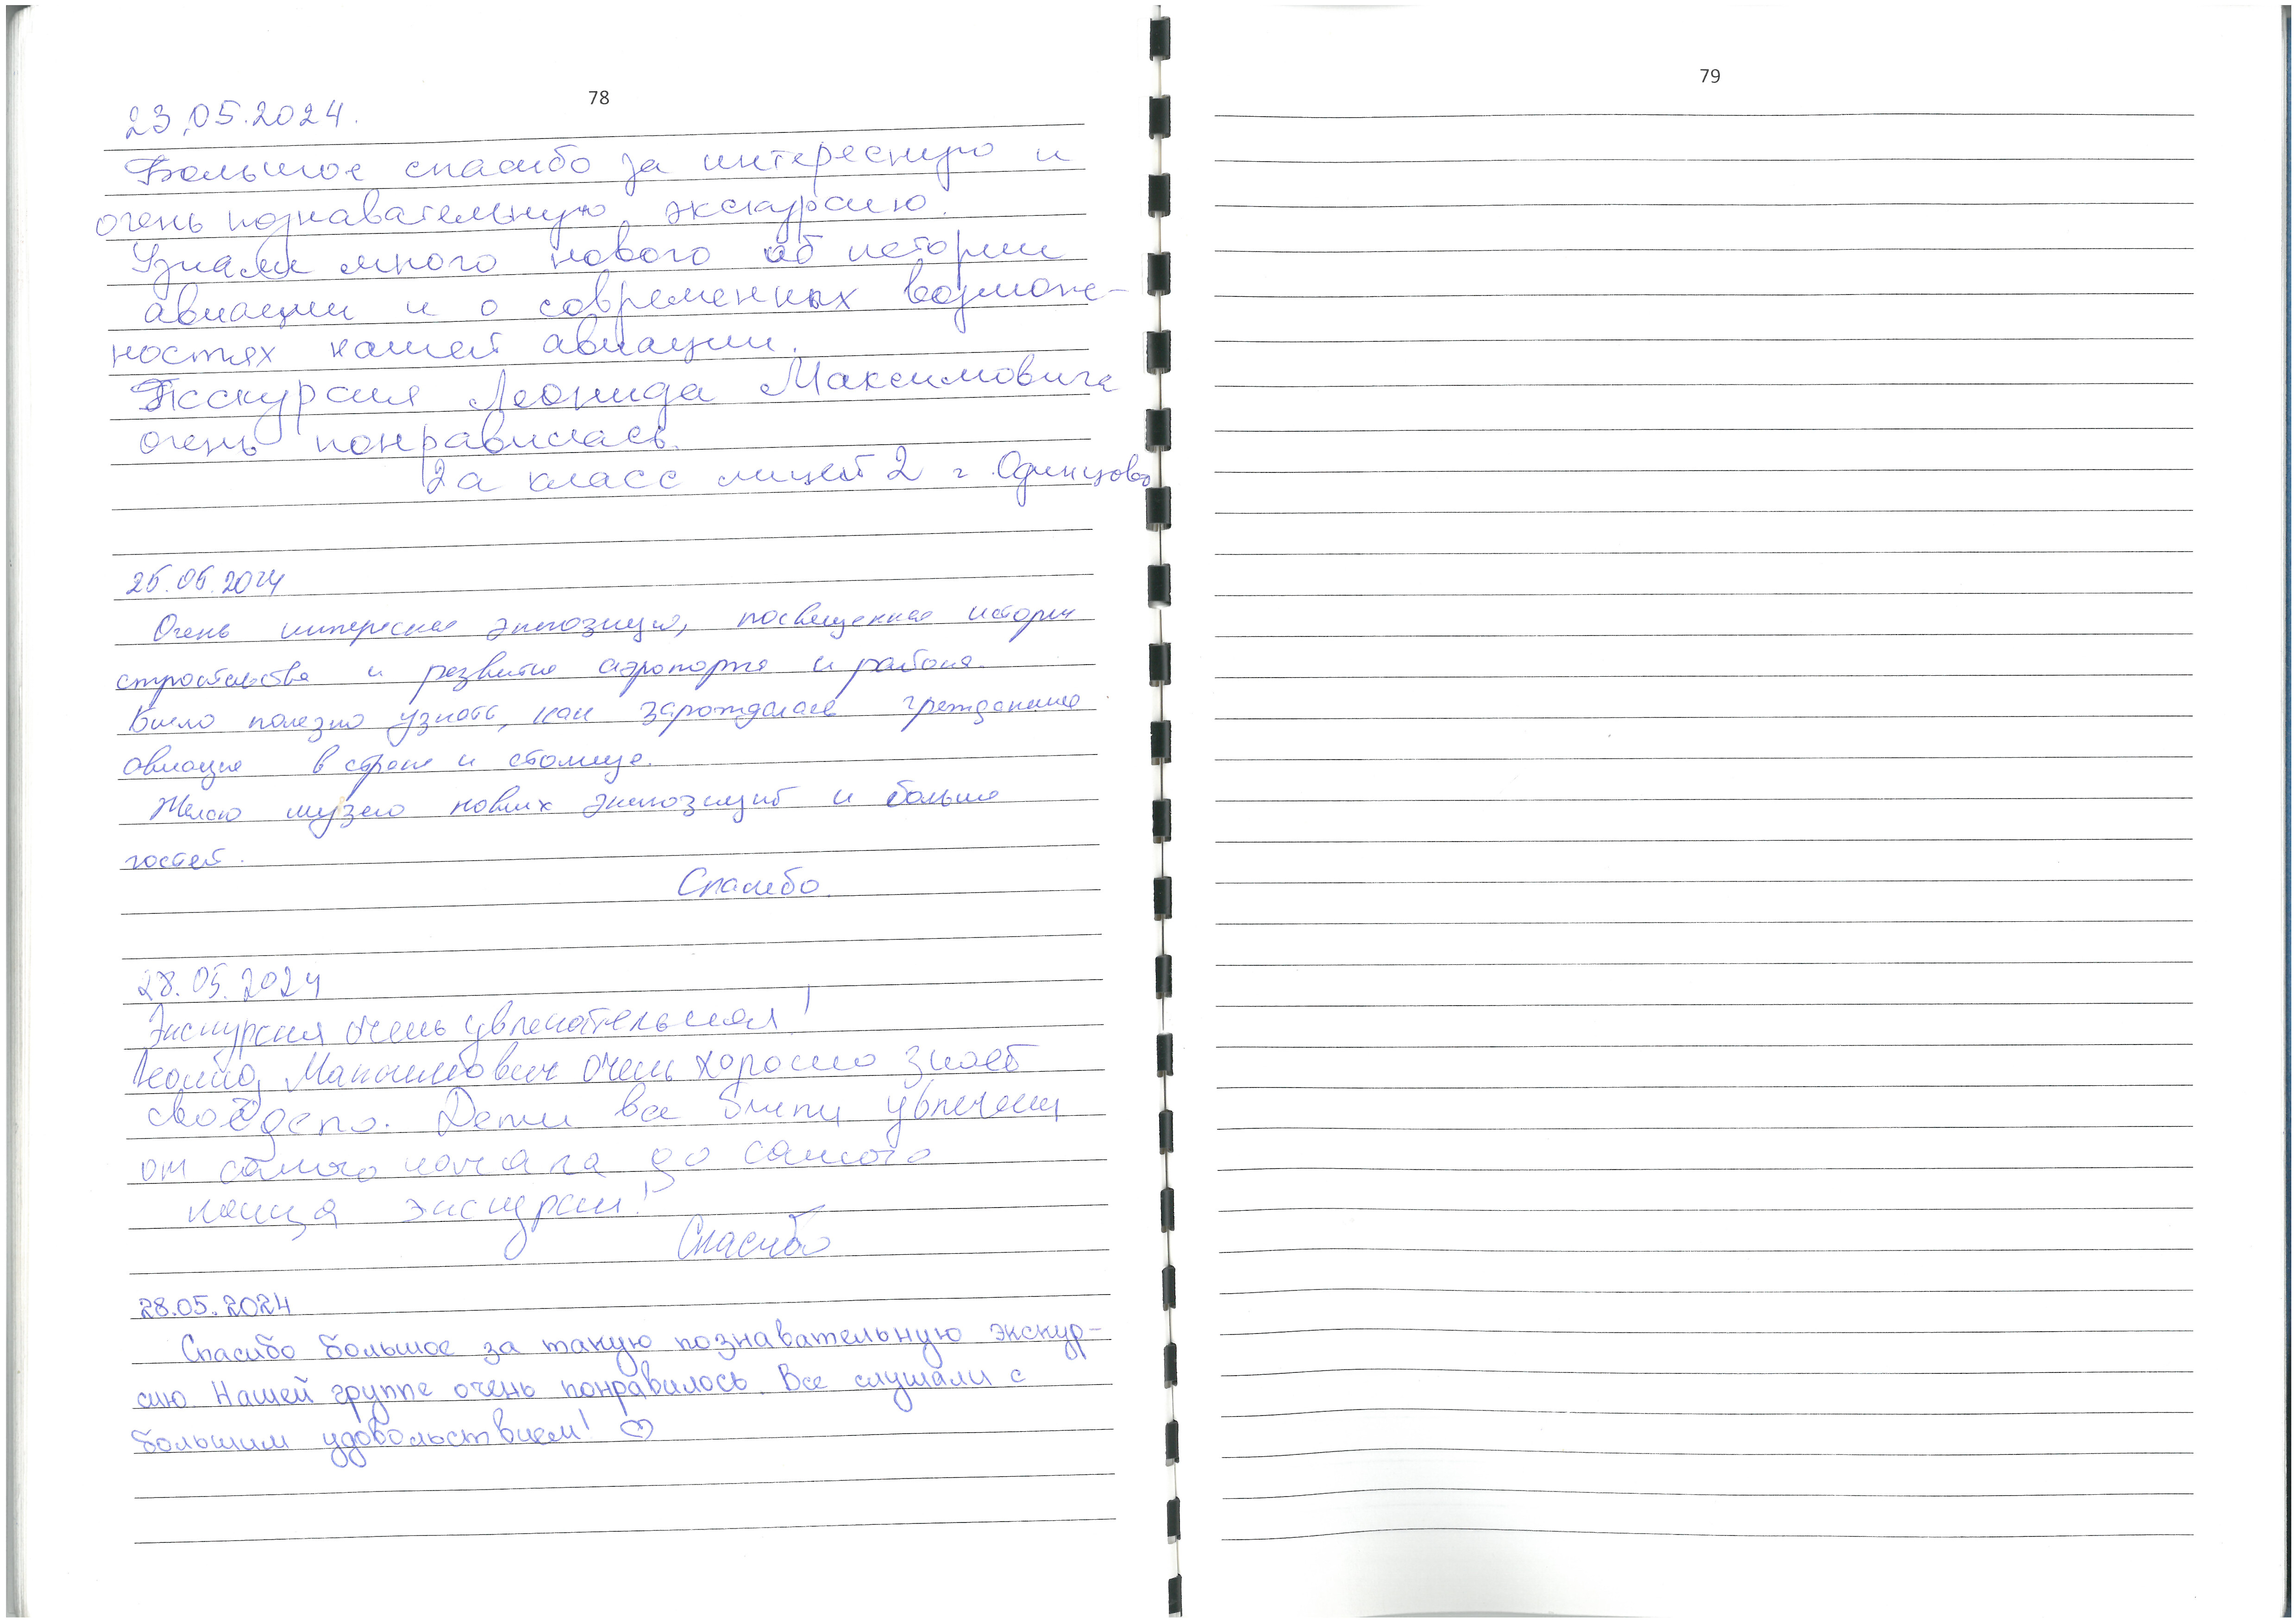 78
23.05.2024.
Большое спасибо за интересную и
очень познавательную экскурсию.
Узнали много нового об истории
авиации и о современных возмож-
ностях нашей авиации.
Экскурсия Леонида Максимовича
очень понравилась.
2а класс лицей 2 г. Одинцово
25.05.2024
Очень интересная экспозиция, посвященная истории
строительства и развития аэропорта и района.
Было полезно узнать, как зарождалась гражданская
авиация в стране и столице.
Желаю музею новых экспозиций и больше
гостей.
Спасибо.
28.05.2024
Экскурсия очень увлекательная!
Леонид Максимович очень хорошо знает
своё дело. Дети все были увлечены
от самого начала до самого
конца экскурсии!
Спасибо
28.05.2024
Спасибо большое за такую познавательную экскур-
сию. Нашей группе очень понравилось. Все слушали с
большим удовольствием! ♡
79